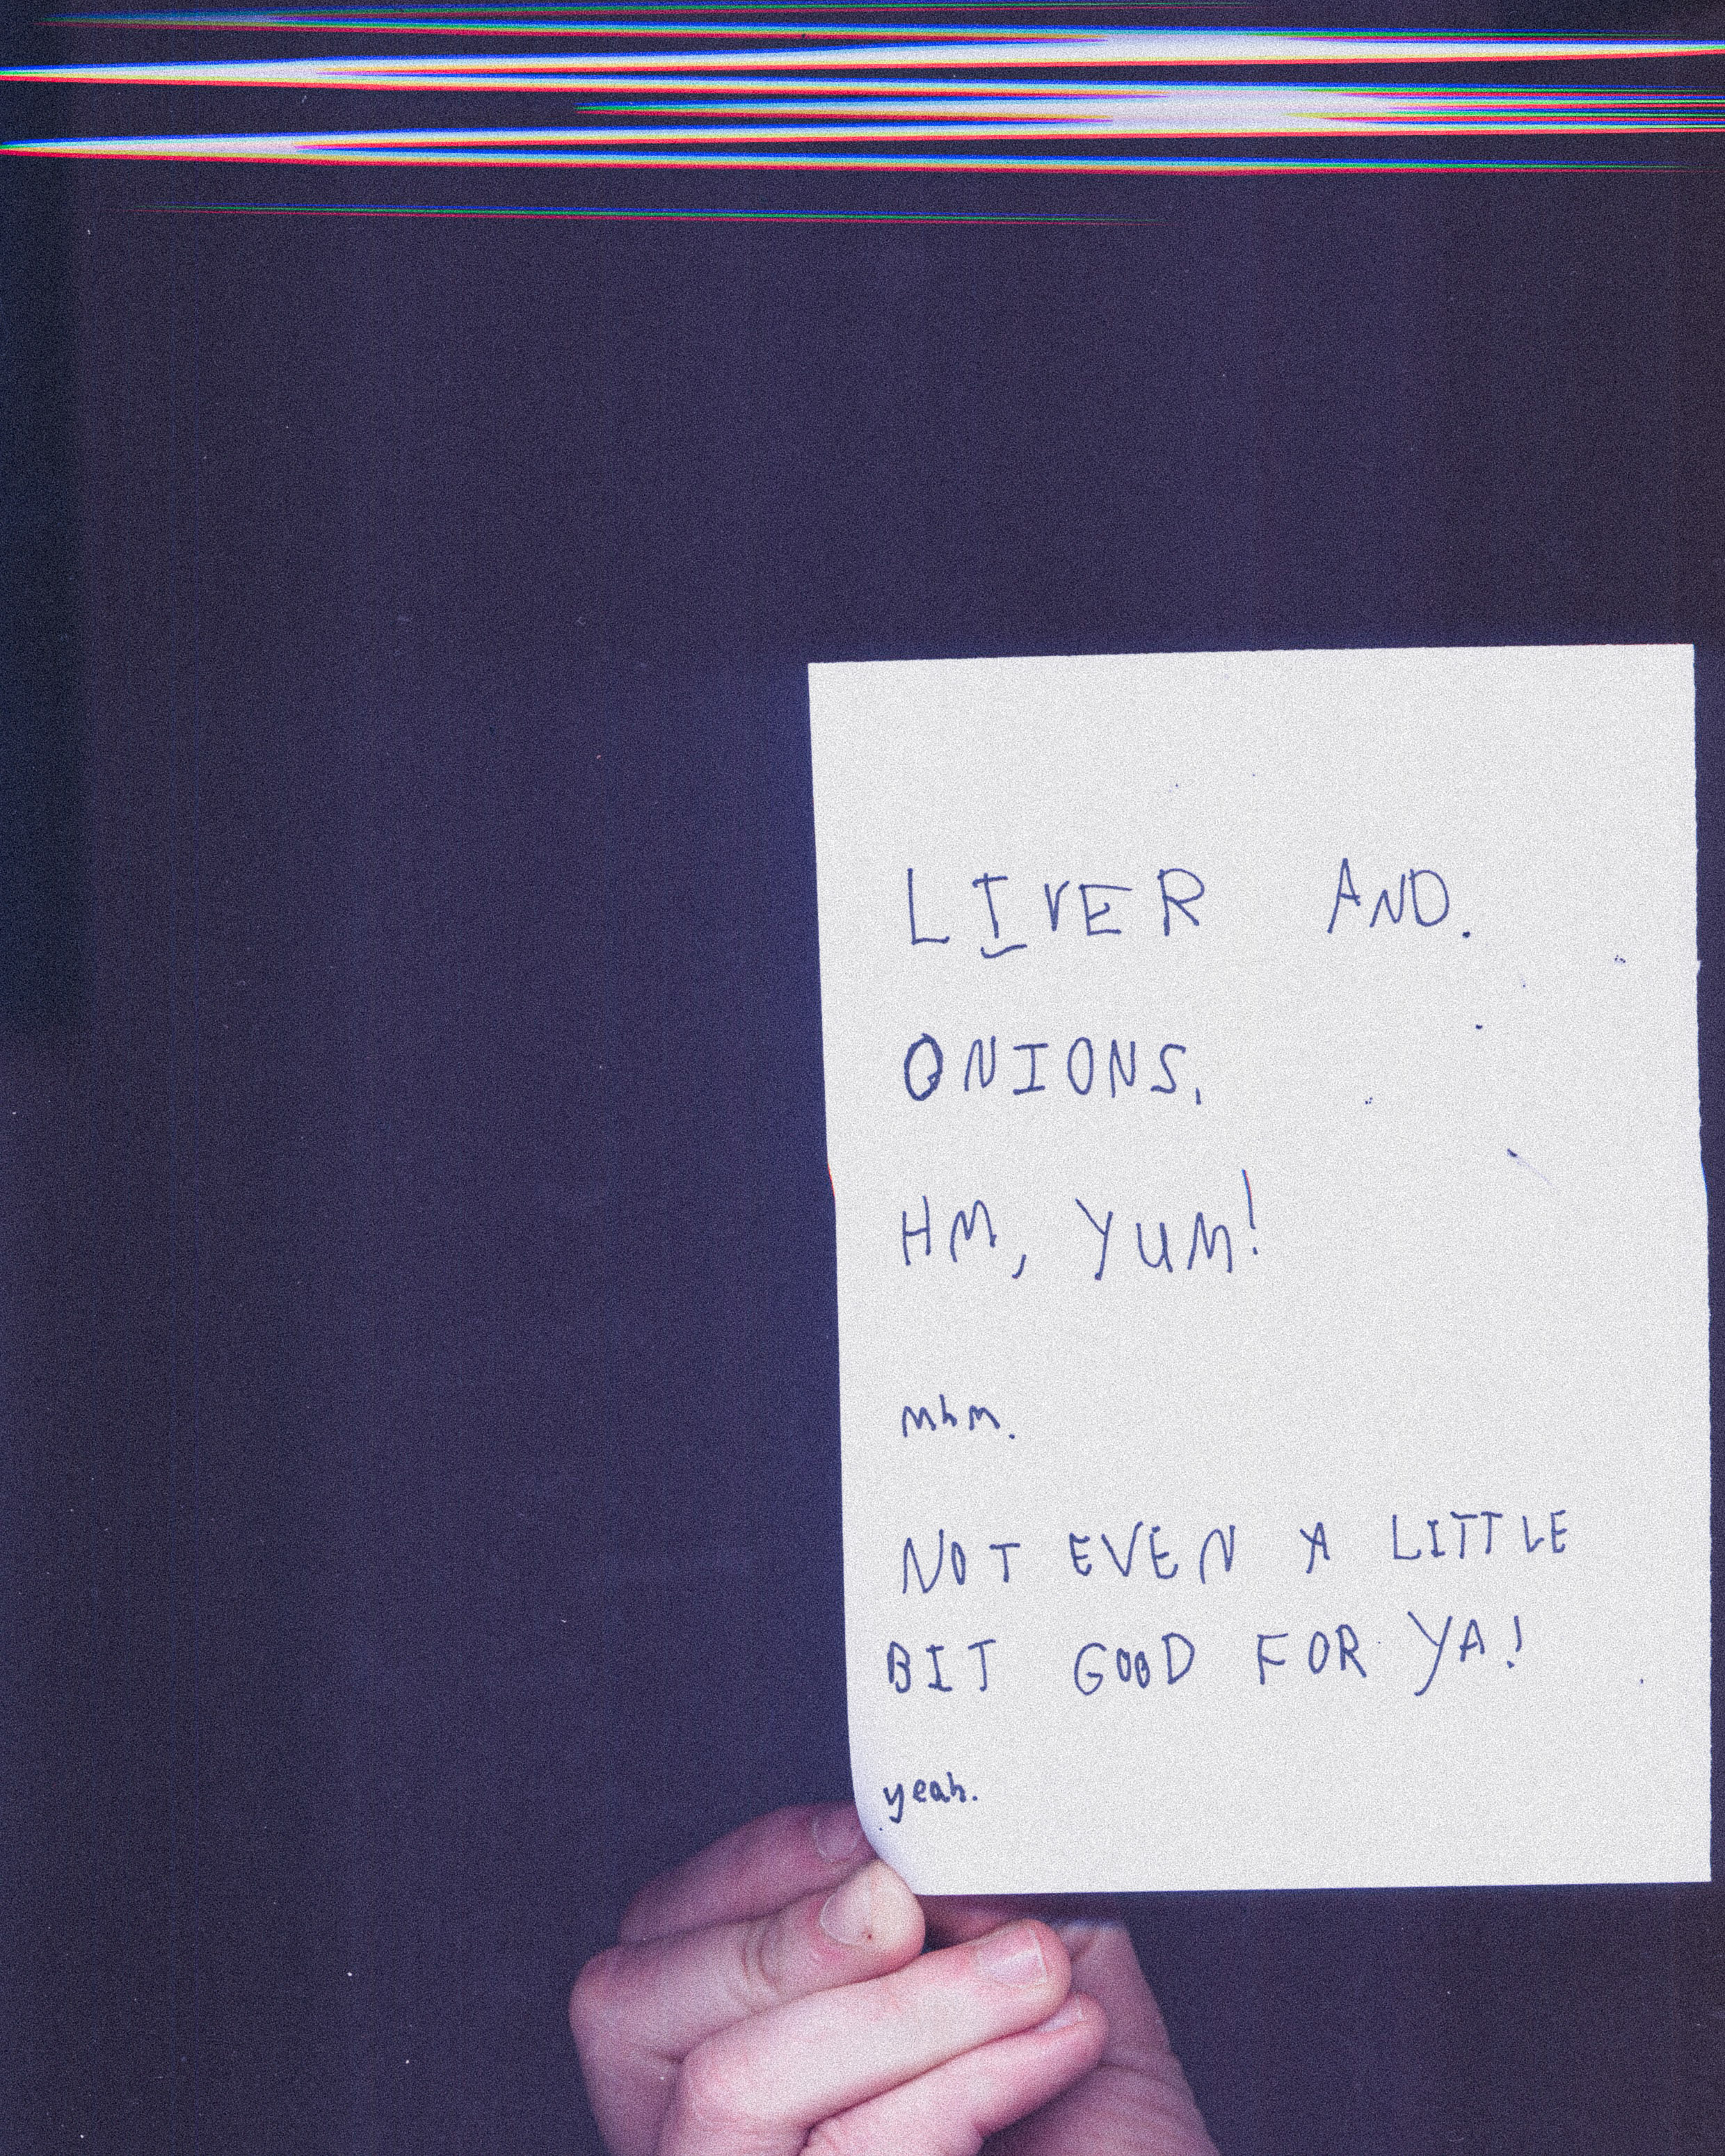 LIVER AND.
ONIONS,
HM, YUM!
mhm.
NOT EVEN A LITTLE
BIT GOOD FOR YA!
yeah.